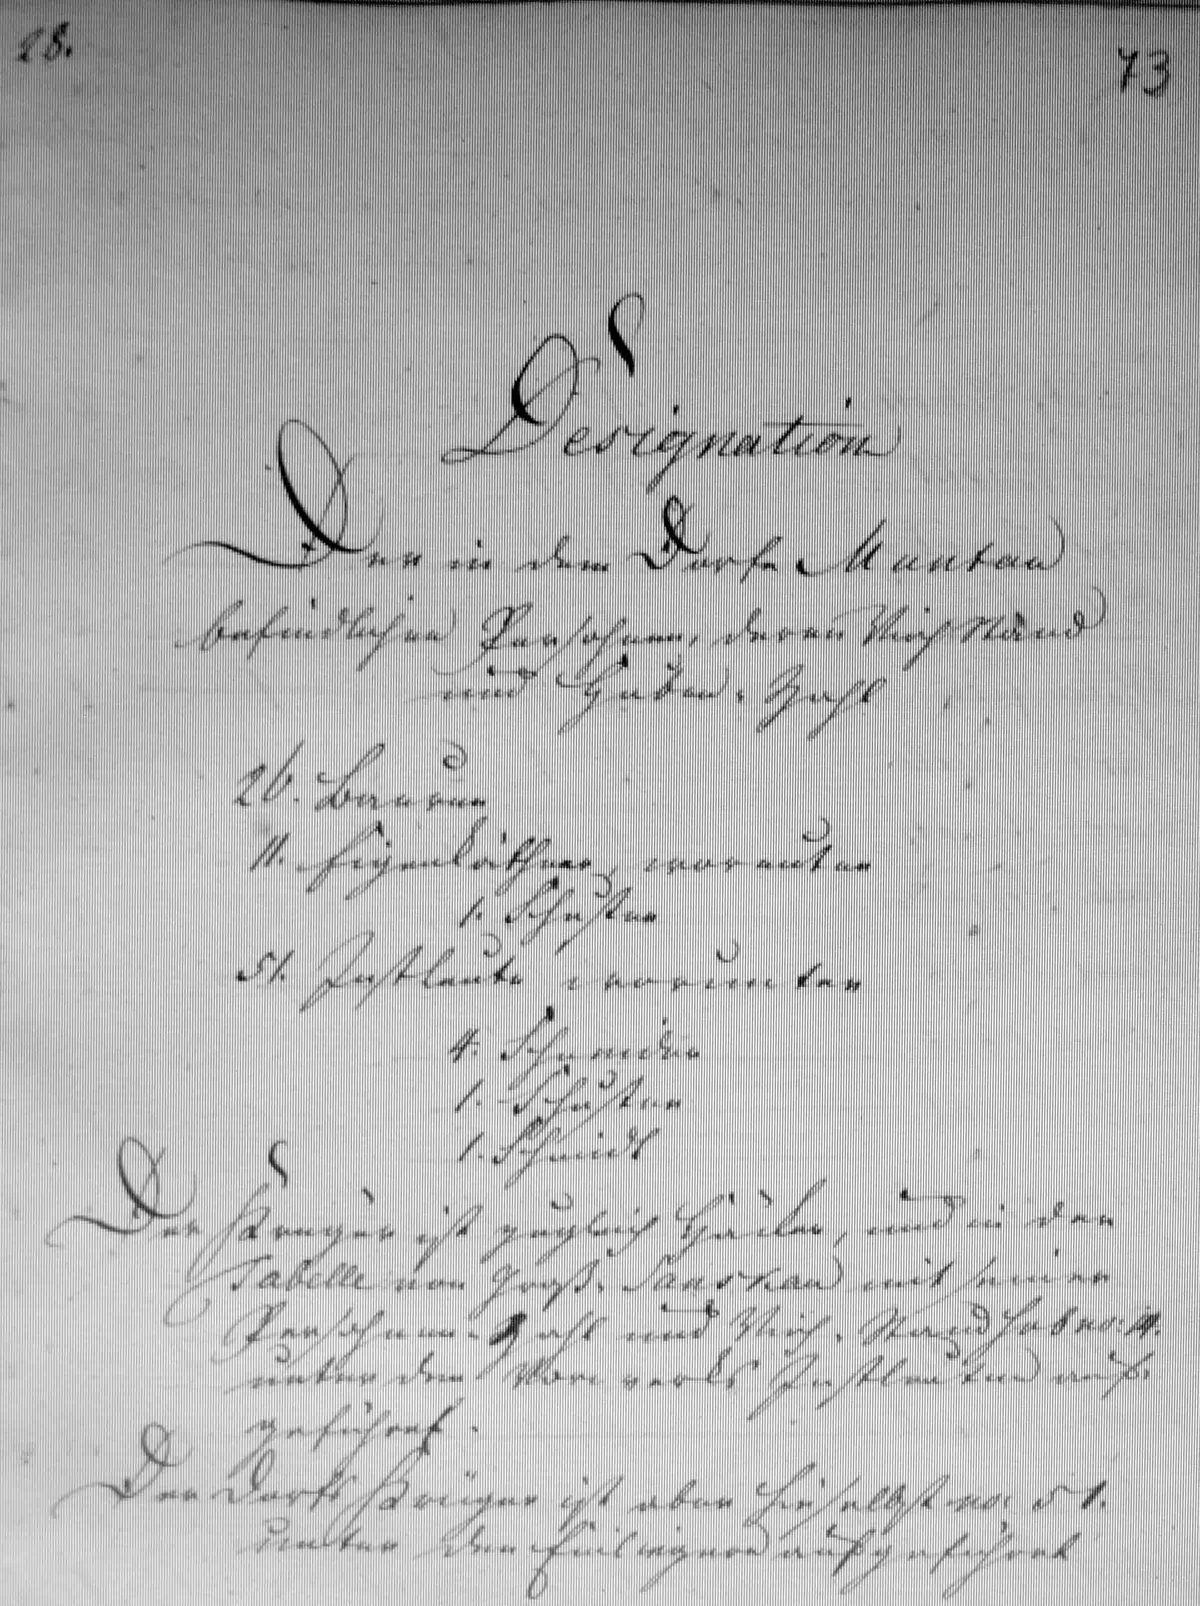 28.
73
Designation
Der in dem Dorfe Montau
befindlichen Persohnen, deren Viehstand
und Huben-Zahl
26. Bauren
11. Eigenkäthner, worunter
1. Schuster
51. Instleute worunter
4. Schneider
1. Schuster
1. Schmidt
Der Krüger ist zugleich Häcker, und in der
Tabelle von Groß-Sanskau mit seiner
Persohnen-Zahl und Vieh-Stand sub no: 14.
unter den Vorwerks Instleuten auf-
geführt.
Der Dorfs Krüger ist aber hieselbst no: 51.
unter den Einliegern aufgeführt